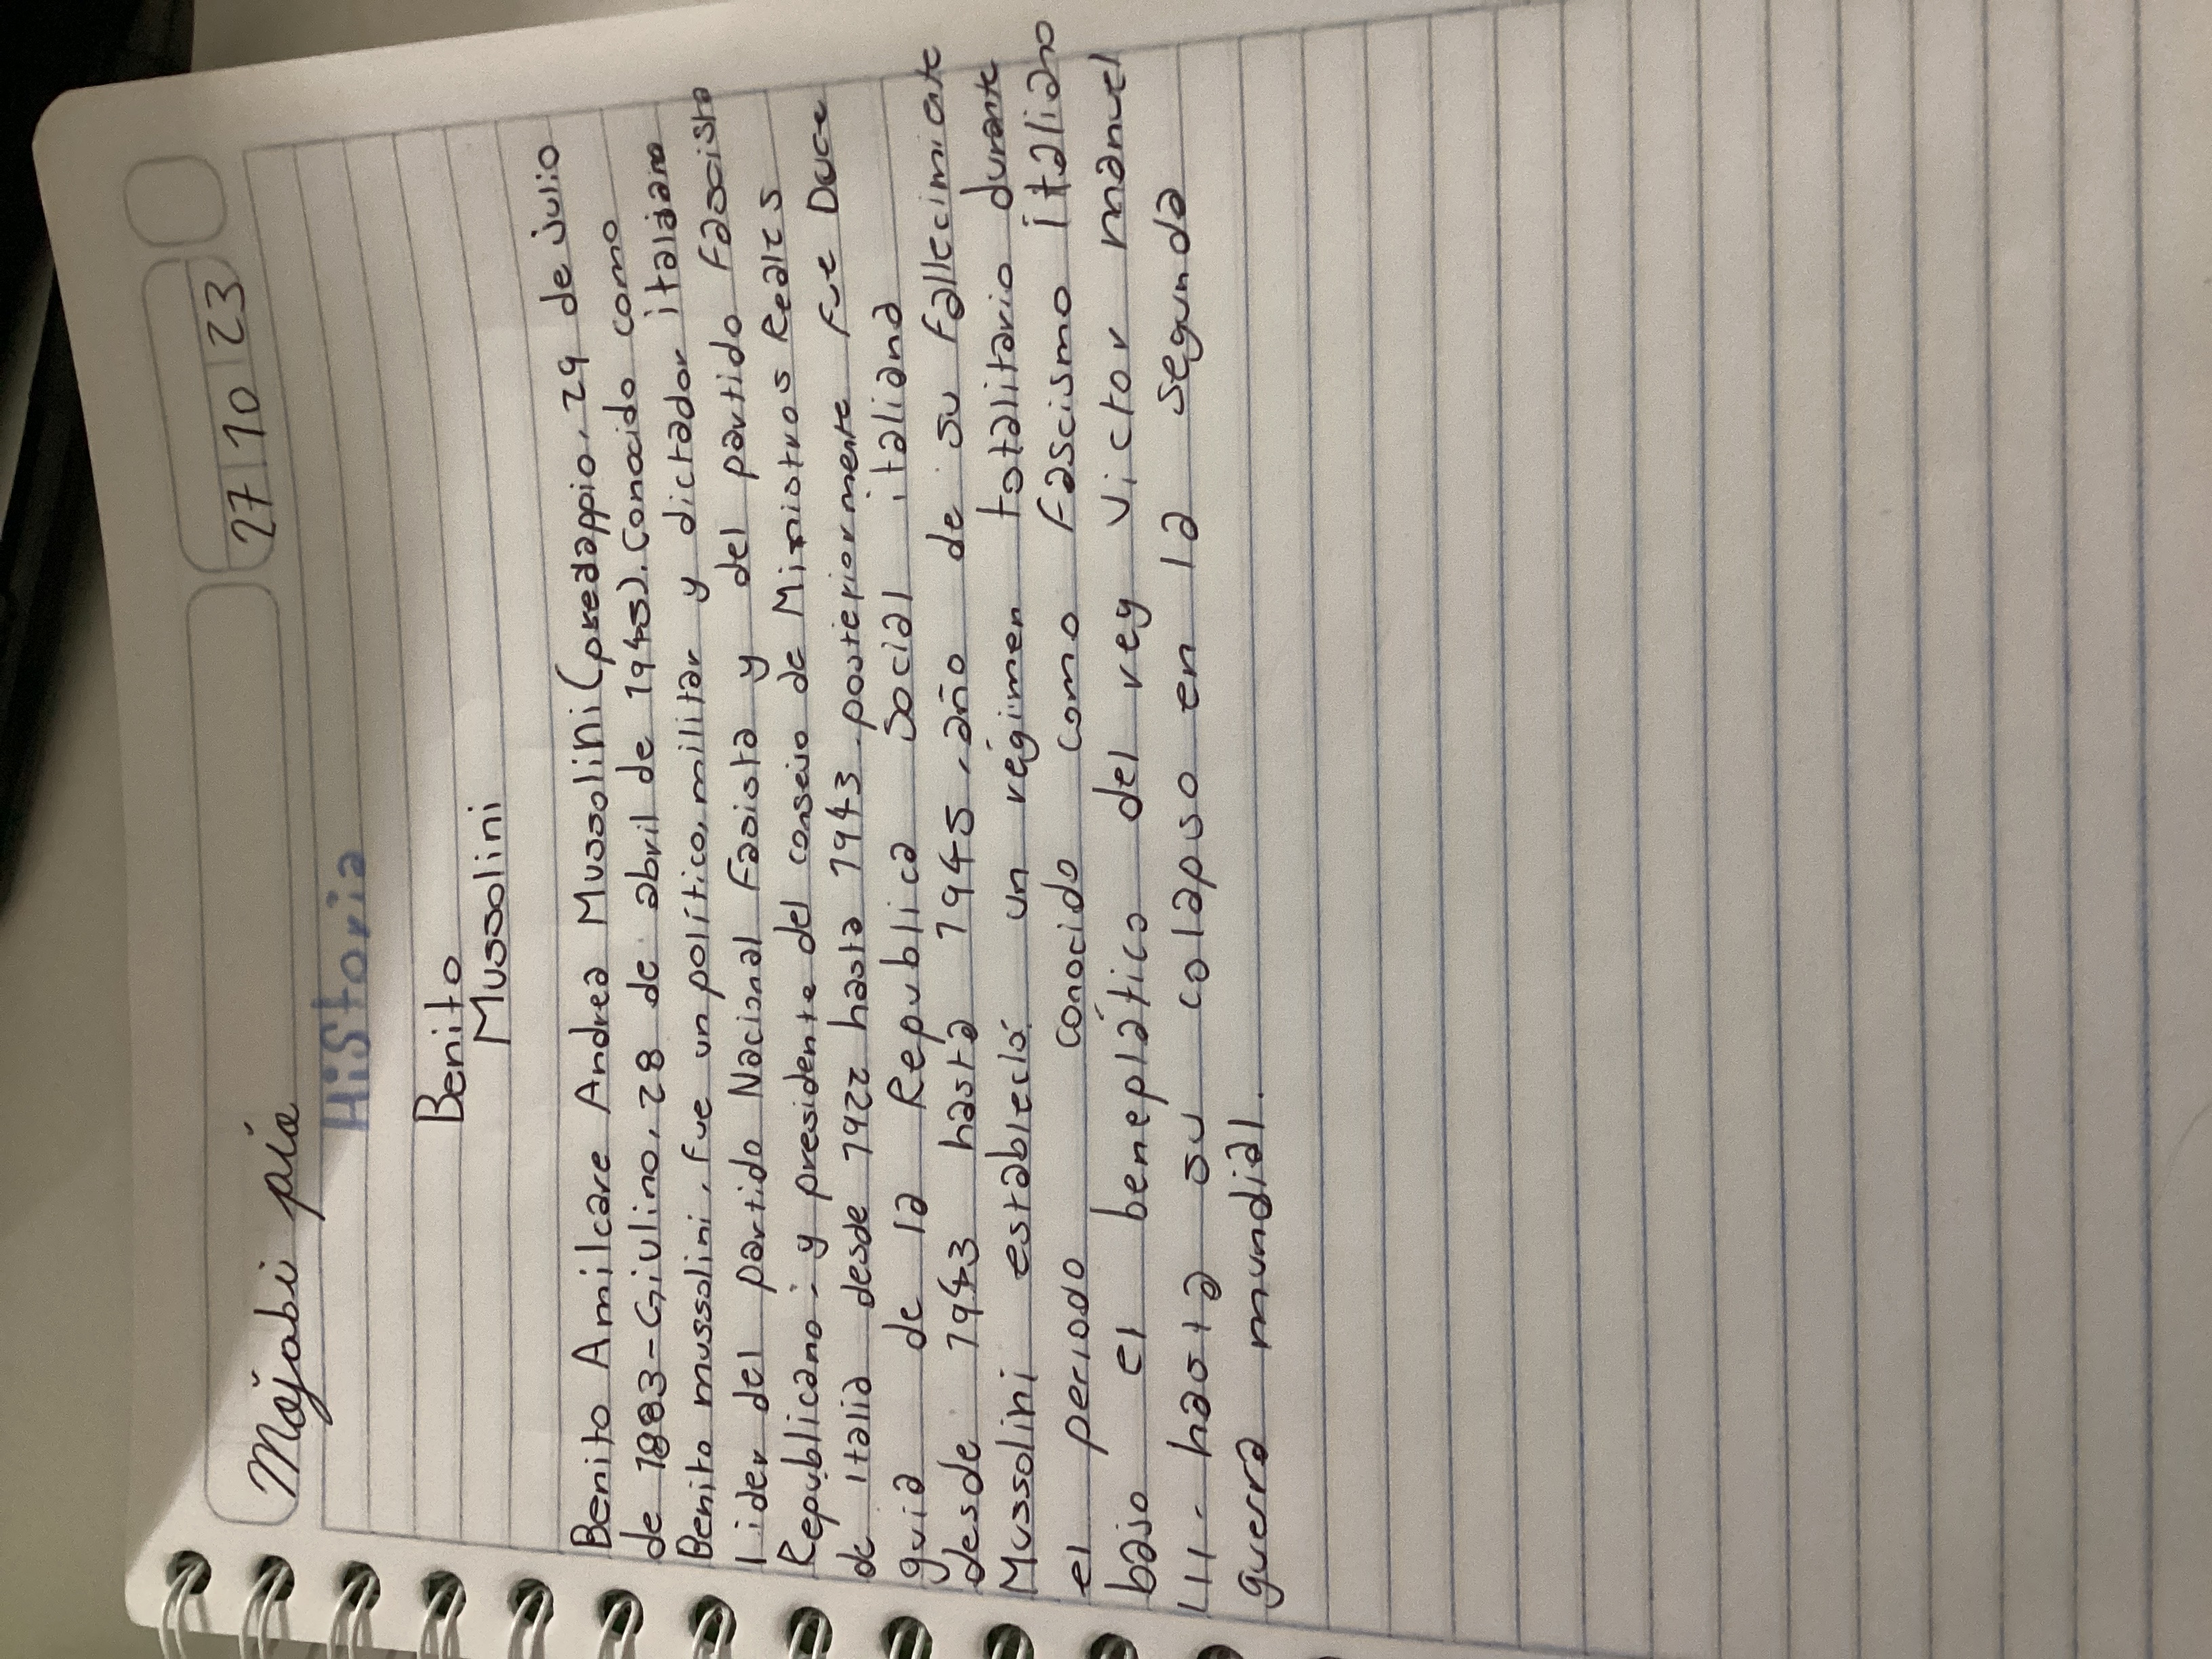 Majabi pía
27 10 23
HiStoria
Benito
Mussolini
Benito Amilcare Andrea Mussolini (predappio, 29 de julio
de 1883-Giulino, 28 de abril de 1945). Conocido como
Benito mussolini, fue un político, militar y dictador italiano
lider del partido Nacional Fascista y del partido Fascista
Republicano; y presidente del consejo de Ministros Reales
de italia desde 1922 hasta 1943 posteriormente fue Duce
guia de la Republica Social italiana
desde 1943 hasta 1945, año de su fallecimiente
Mussolini estableció un régimen totalitario durante
el periodo conocido como Fascismo italiano
bajo el beneplático del rey Victor manuel
LII. hasta su colapso en la segunda
guerra mundial.